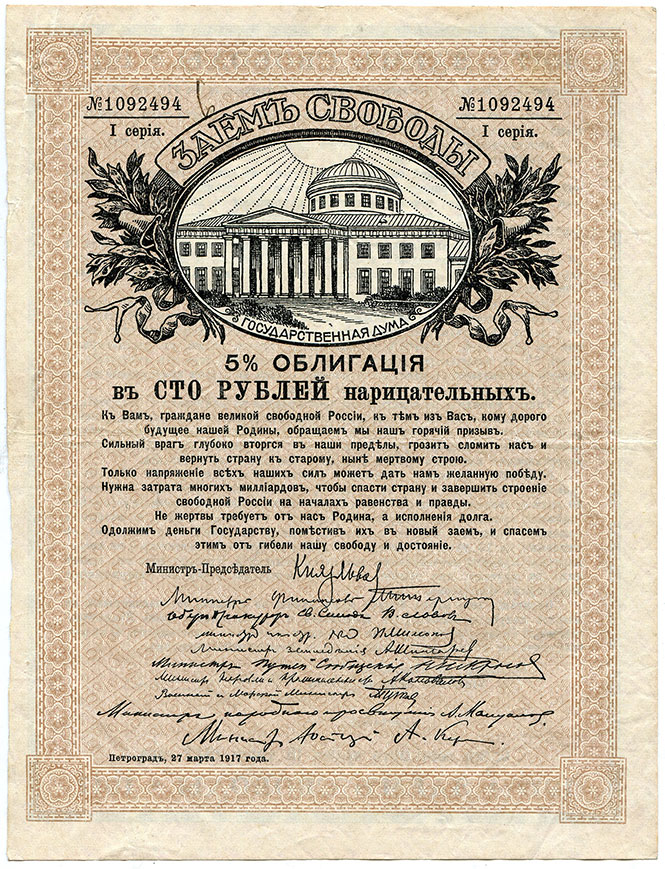 №1092494
№1092494
I серія.
I серія.
ЗАЕМЪ СВОБОДЫ
ГОСУДАРСТВЕННАЯ ДУМА
5% ОБЛИГАЦІЯ
въ СТО РУБЛЕЙ нарицательныхъ.
Къ Вамъ, граждане великой свободной Россіи, къ тѣмъ изъ Васъ, кому дорого
будущее нашей Родины, обращаемъ мы нашъ горячій призывъ.
Сильный врагъ глубоко вторгся въ наши предѣлы, грозитъ сломить насъ и
вернуть страну къ старому, нынѣ мертвому строю.
Только напряженіе всѣхъ нашихъ силъ можетъ дать намъ желанную побѣду.
Нужна затрата многихъ милліардовъ, чтобы спасти страну и завершить строеніе
свободной Россіи на началахъ равенства и правды.
Не жертвы требуетъ отъ насъ Родина, а исполненія долга.
Одолжимъ деньги Государству, помѣстивъ ихъ въ новый заемъ, и спасемъ
этимъ отъ гибели нашу свободу и достояніе.
Министръ-Предсѣдатель Князь Львов
Министръ Финансовъ
Оберъ Прокуроръ Св. Синода В. Львовъ
Министръ земледѣлія А. Шингарев
Министръ Путей Сообщенія
Министр Торговли и Промышленности А. Коноваловъ
Военный и Морской Министръ
Министръ народного просвѣщенія А. Мануйловъ
Министръ Юстиціи А. Кер
Петроградъ, 27 марта 1917 года.